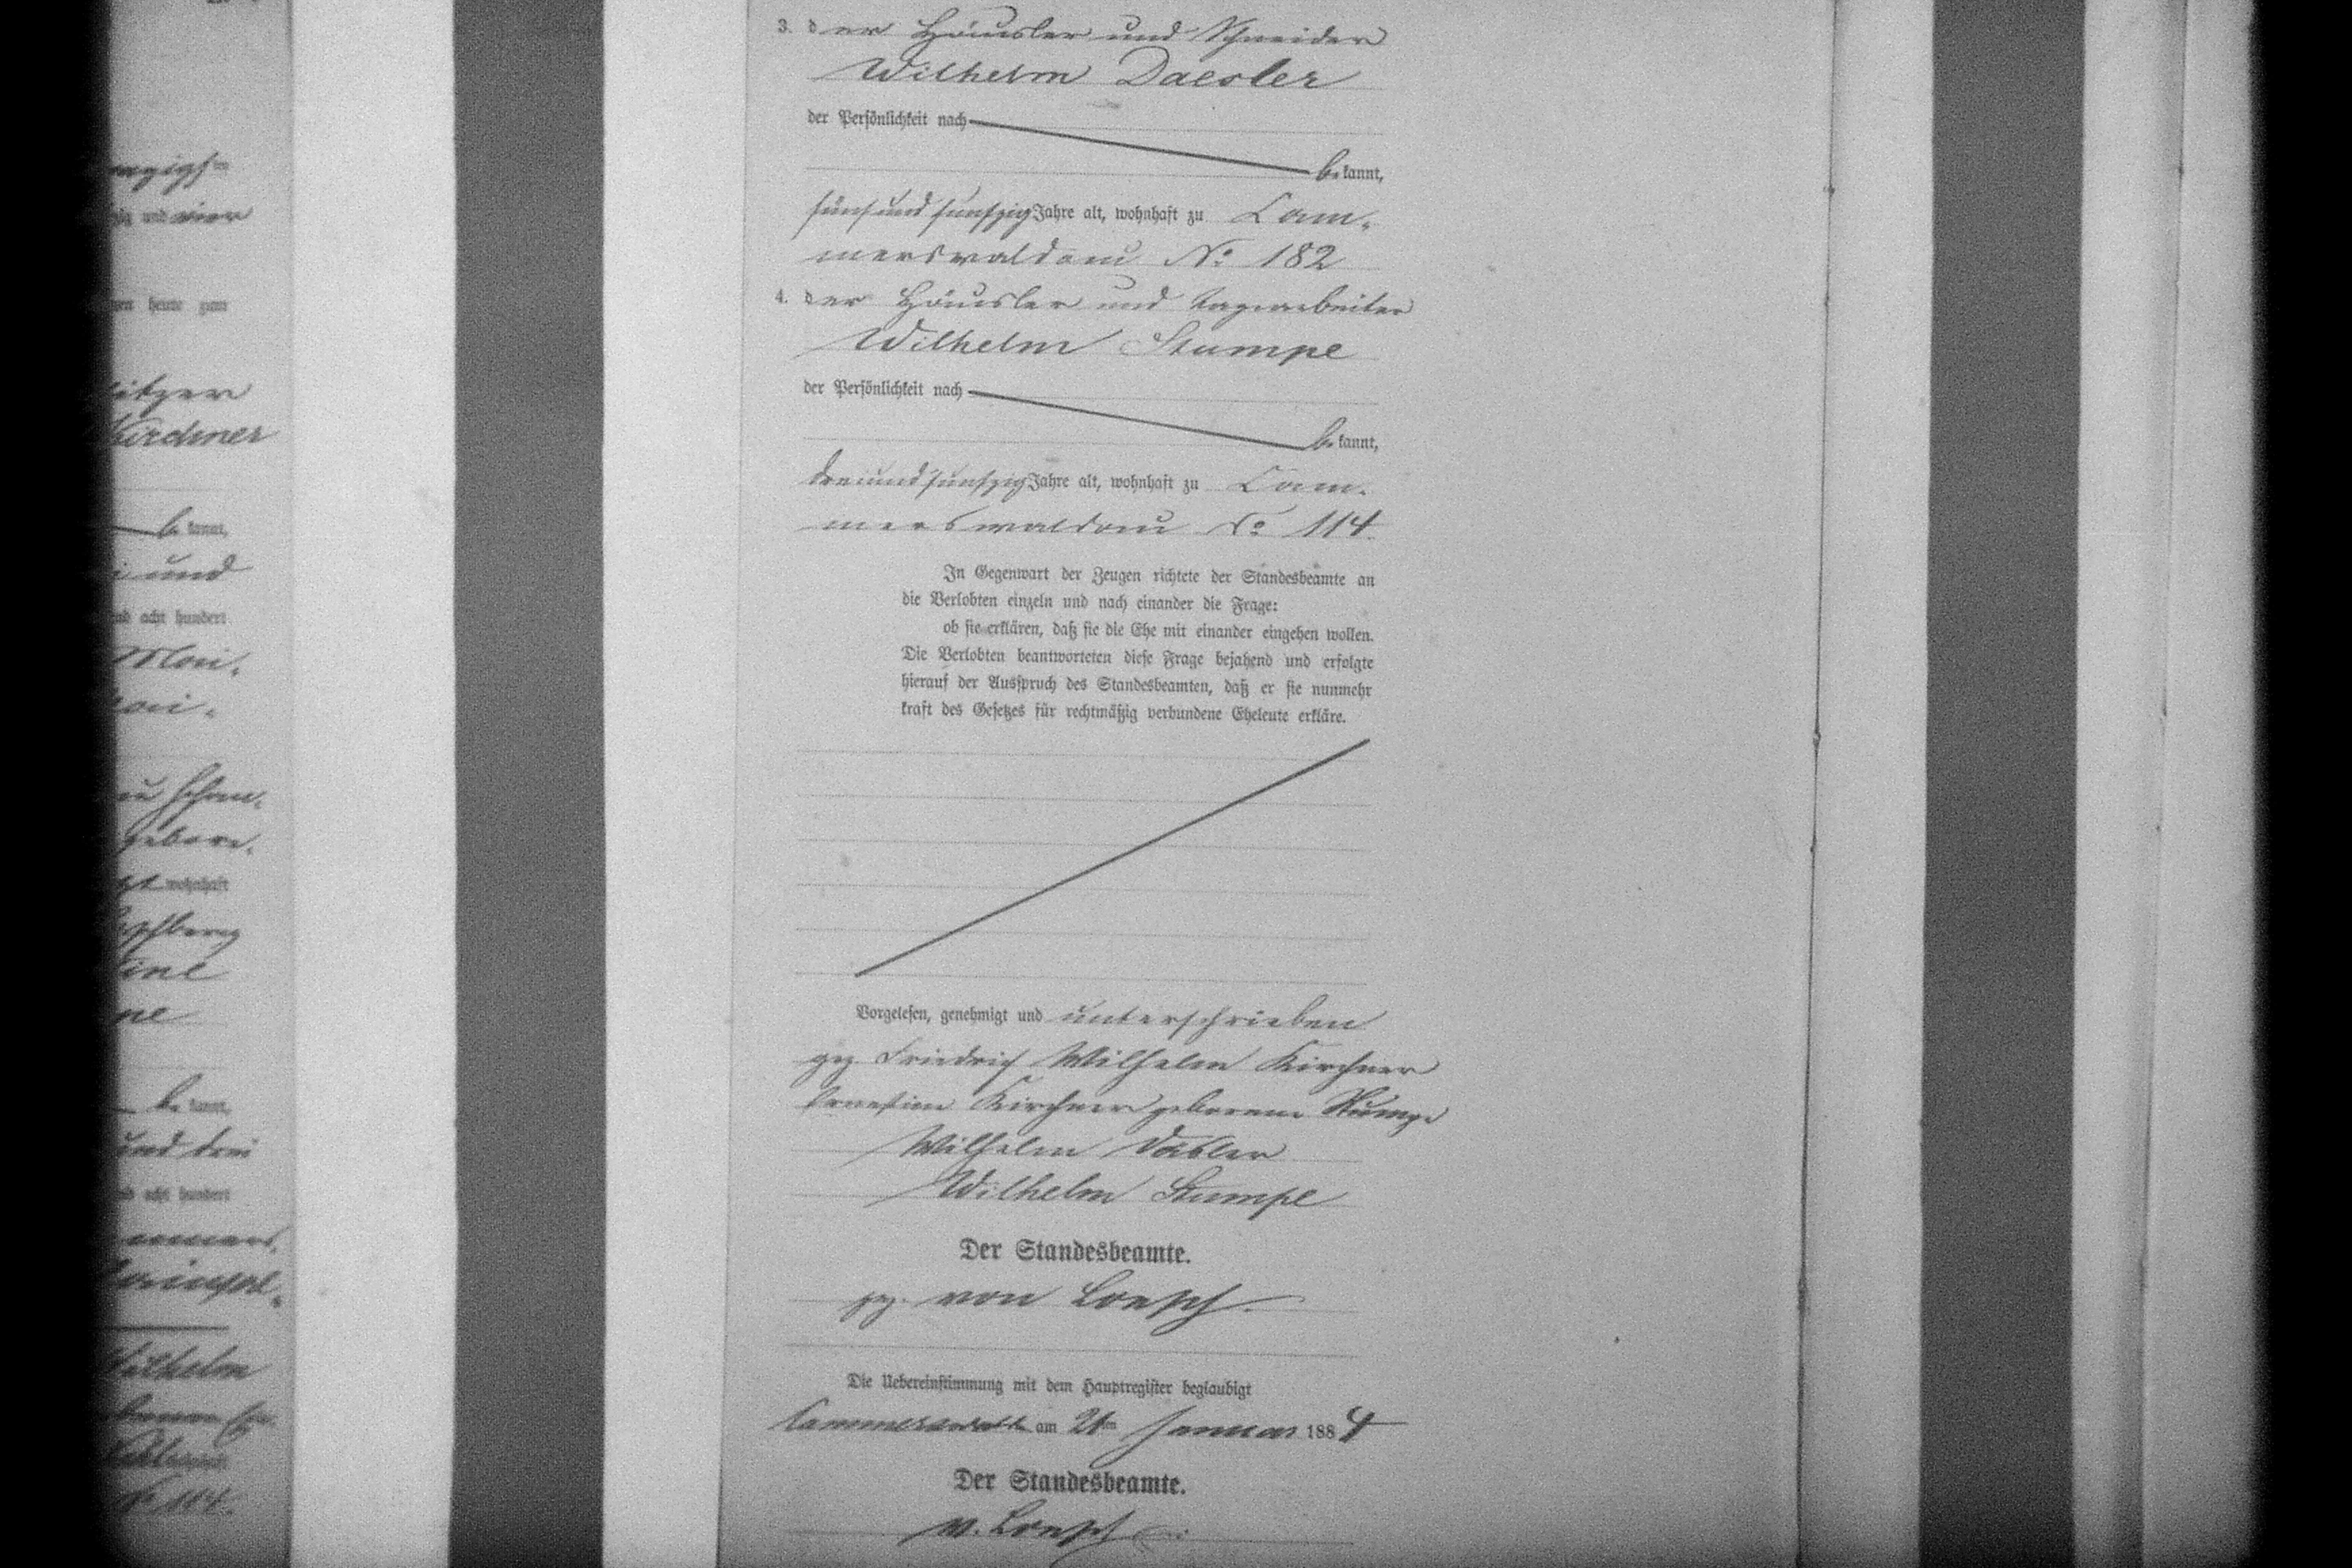 3. der Häusler und Schneider
Wilhelm Daesler
der Persönlichkeit nach
bekannt,
fünfund funfzig Jahre alt, wohnhaft zu Cam-
merswaldau No 182
4. der Häusler und Tagearbeiter
Wilhelm Stumpe
der Persönlichkeit nach
bekannt,
dreiundfunfzig Jahre alt, wohnhaft zu Cam-
merswaldau No 114.
In Gegenwart der Zeugen richtete der Standesbeamte an
die Verlobten einzeln und nach einander die Frage:
ob sie erklären, daß sie die Ehe mit einander eingehen wollen.
Die Verlobten beantworteten diese Frage bejahend und erfolgte
hierauf der Ausspruch des Standesbeamten, daß er sie nunmehr
kraft des Gesetzes für rechtmäßig verbundene Eheleute erkläre.
Vorgelesen, genehmigt und unterschrieben
gez. Friedrich Wilhelm Kirchner
Ernestine Kirchner geborene Stumpe
Wilhelm Däsler
Wilhelm Stumpe
Der Standesbeamte.
gez. von Loesch.
Die Uebereinstimmung mit dem Hauptregister beglaubigt
am Januar 1884
Der Standesbeamte.
v. Loesch
itzer
Kirchner
bekannt,
i und
acht hundert
wohnhaft
ine
pe
bekannt,
und drei
acht hundert
Wilhelm
No 114.